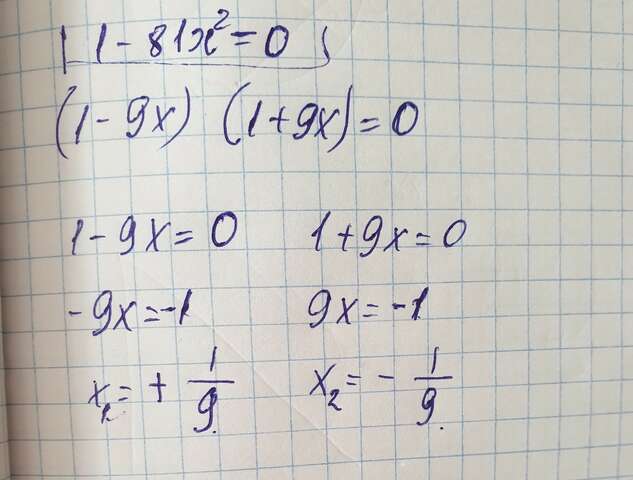 1 - 81x² = 0
(1 - 9x) (1 + 9x) = 0
1 - 9x = 0 1 + 9x = 0
- 9x = -1 9x = -1
x₁ = + 1/9 x₂ = - 1/9.